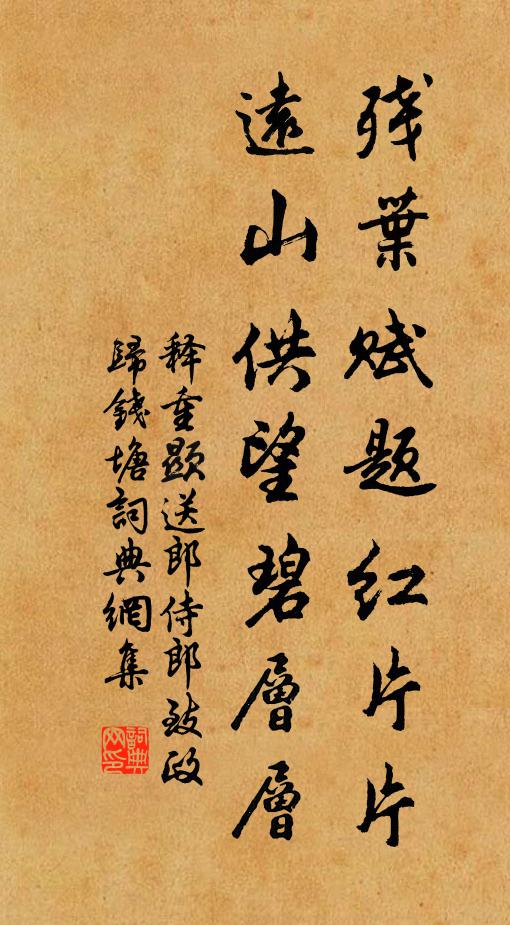 残葉赋题红片片
遠山供望碧層層
释重顯送郎侍郎致政
歸錢塘詞典網集
詞典網印